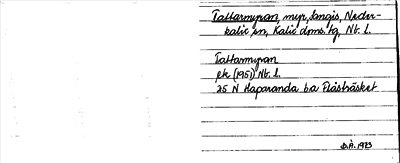 Tattarmyran, myr, Sangis, Neder-
kalix sn, Kalix dms. tg, Nb. l.
Tattarmyran
ek (1951) Nb. l.
25 N Haparanda b.a Flåsträsket
D.Å. 1973